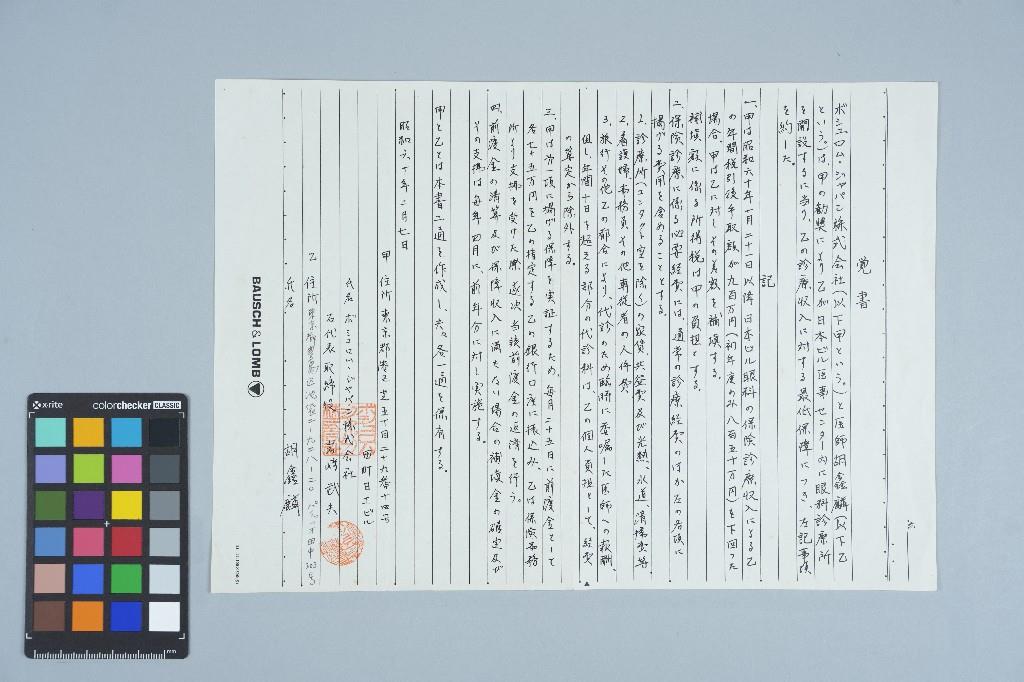 覚書
ボシュロム・ジャパン株式会社(以下甲という。)と医師胡鑫麟(以下乙
という。)は、甲の勧奨により乙が日本ビル医事センター内に眼科診療所
を開設するに当り、乙の診療収入に対する最低保障につき、左記事項
を約した。
記
一、甲は昭和六十年一月二十一日以降日本ビル眼科の保険診療収入による乙
の年間税引後手取額が九百万円(初年度のみ八百五十万円)を下回った
場合、甲は乙に対しその差額を補填する。
補填額に係る所得税は甲の負担とする。
二、保険診療に係る必要経費には、通常の診療経費のほかたの各項に
掲げる費用を含めることとする。
1、診療所(コンタクト室を除く)の家賃、共益費及び光熱、水道、清掃費等
2、看護婦、事務員その他専従者の人件費
3、旅行その他乙の都合により、代診のため臨時に委嘱した医師への報酬、
但し、年間十日を超える部分の代診料は、乙の個人負担として、経費
の算定から除外する。
三、甲は第一項に掲げる保障を実証するため、毎月二十五日に前渡金として
各七十五万円を乙の指定する乙の銀行口座に振込み、乙は保険事務
所より支払を受けた際、逐次当該前渡金の返済を行う。
四、前渡金の清算及び保障収入に満たない場合の補償金の確定及び
その支払は毎年四月に、前年分に対し実施する。
甲と乙とは本書二通を作成し、夫々各一通を保有する。
昭和六十年二月七日
甲 住所 東京都港区芝五丁目二十九番十四号
田町日工ビル
氏名 ボシュロム・ジャパン株式会社
右代表取締役 武夫
乙 住所 東京都豊島区池袋二ー九二八ー二〇 田中303号
氏名 胡鑫麟
BAUSCH & LOMB
x-rite
colorchecker CLASSIC
mm